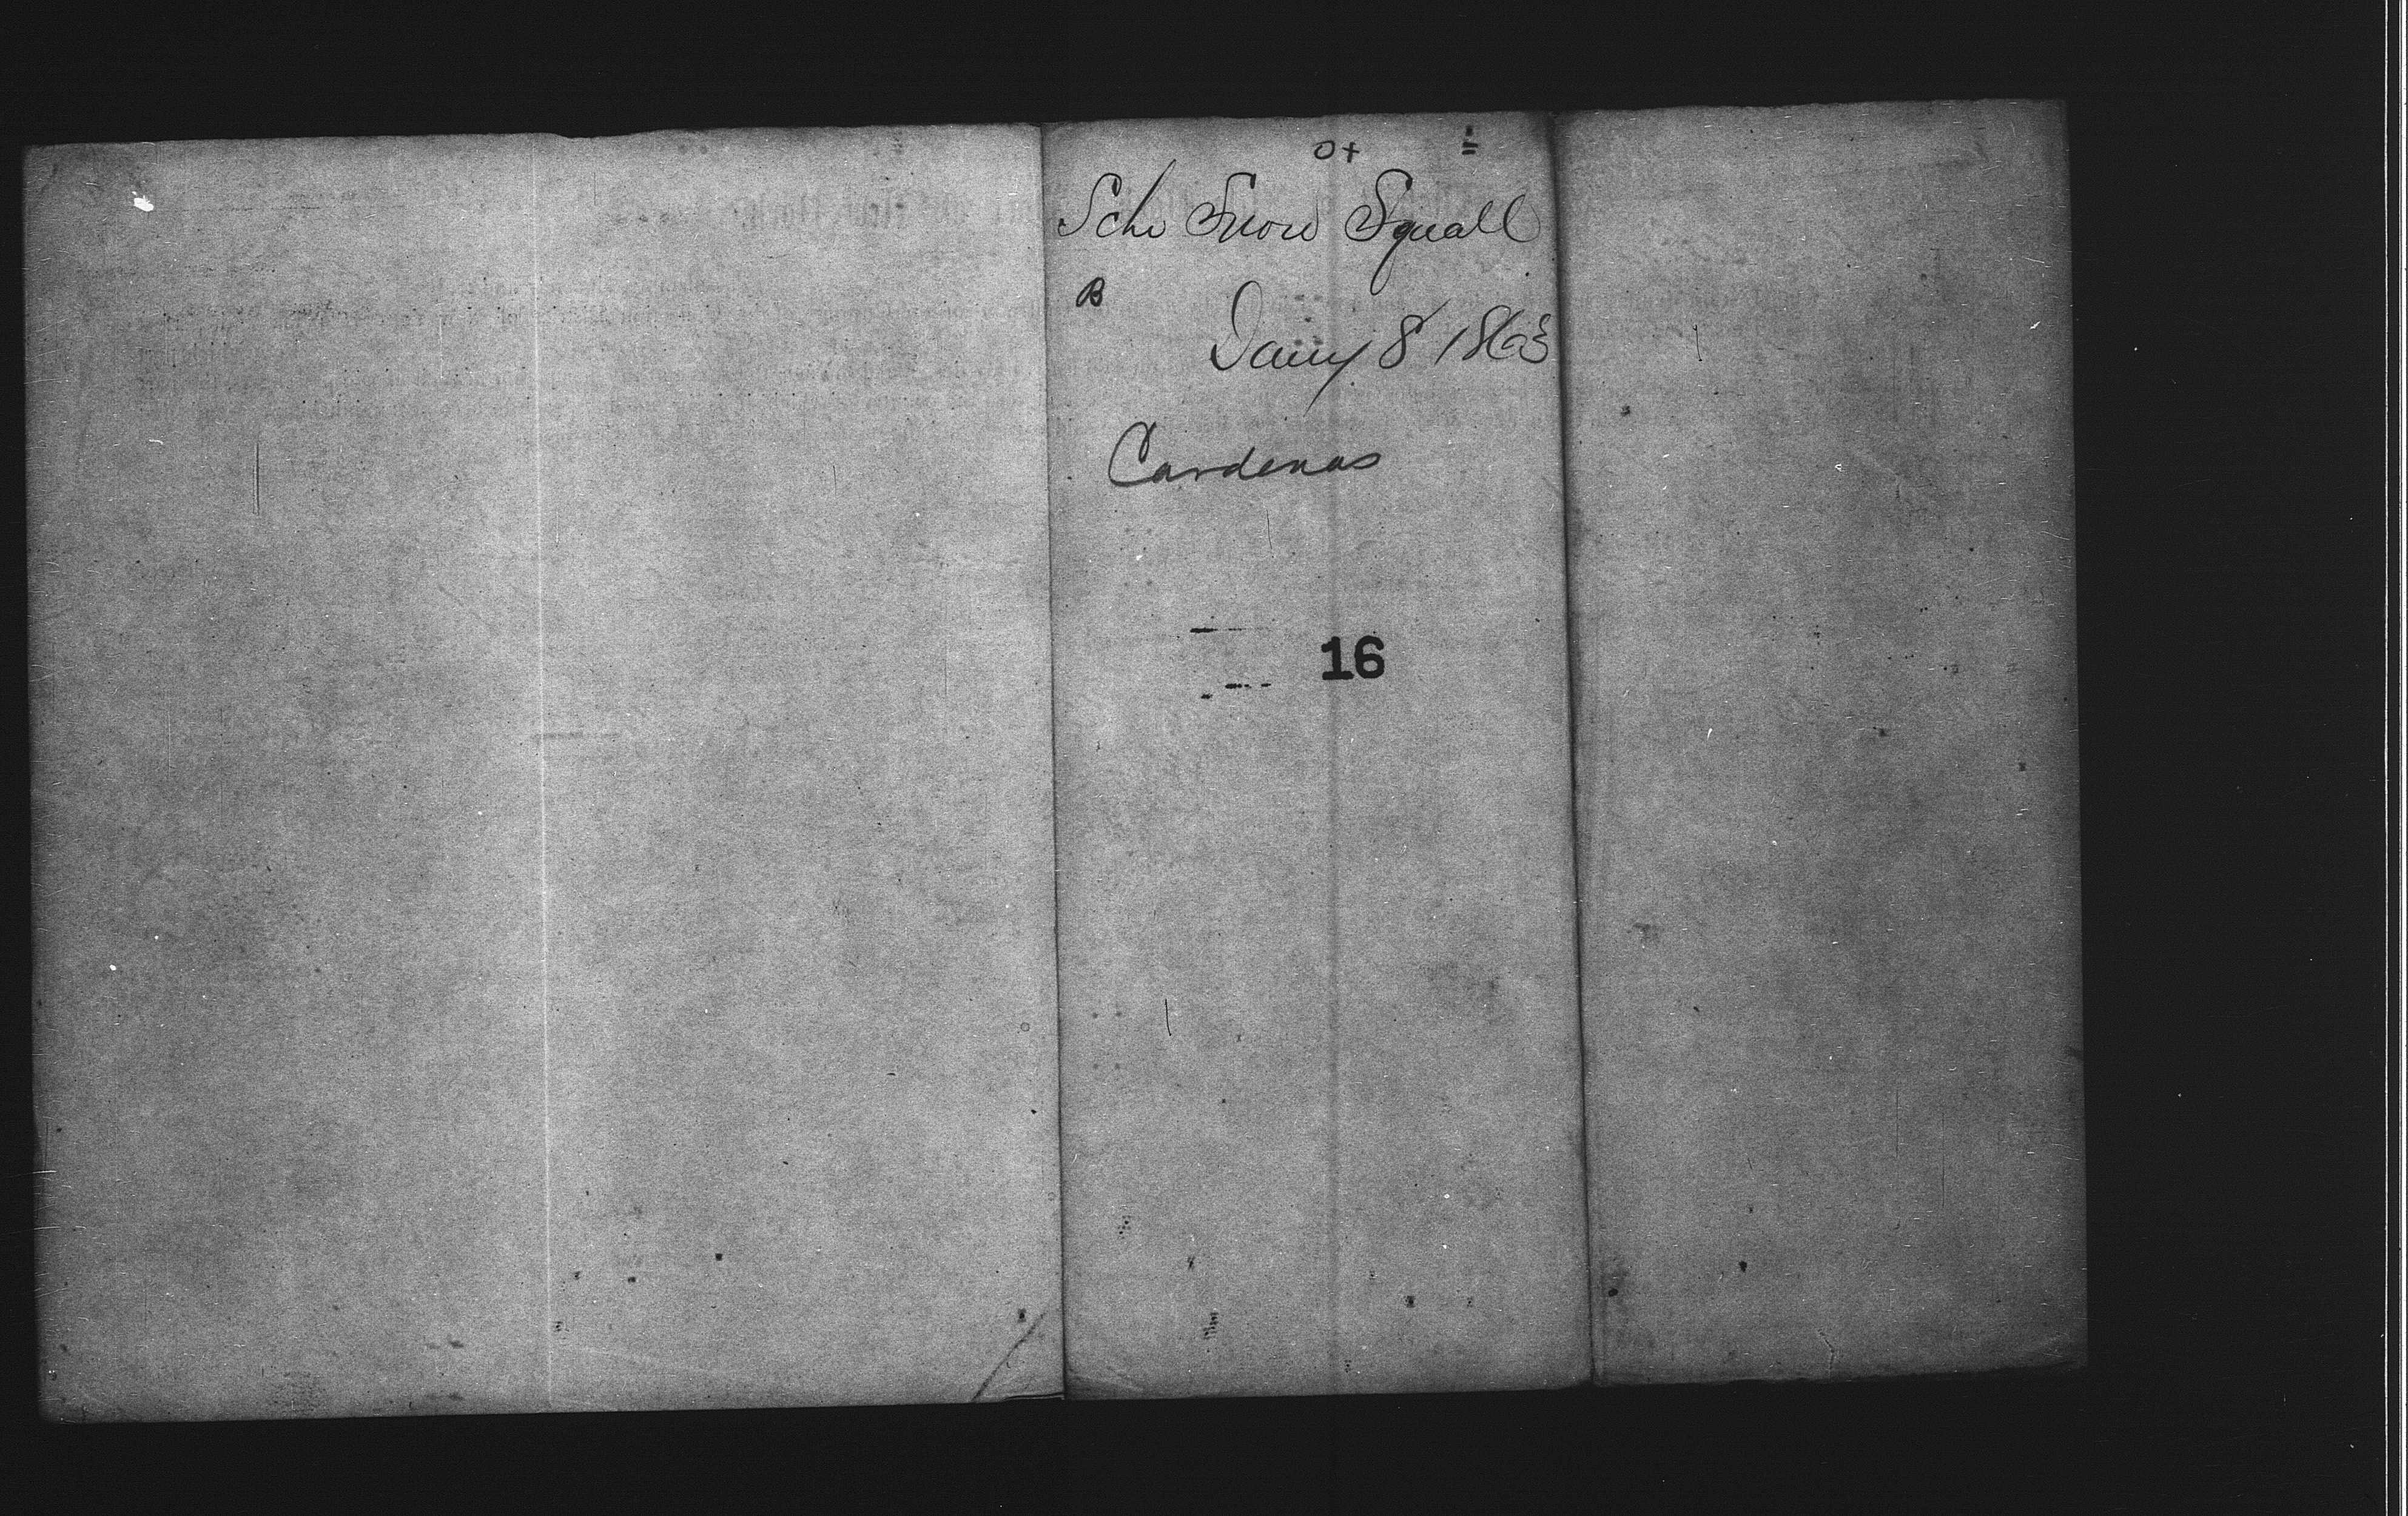 O+
Schr Snow Squall
B
Jany 8 1863
Cardenas
16